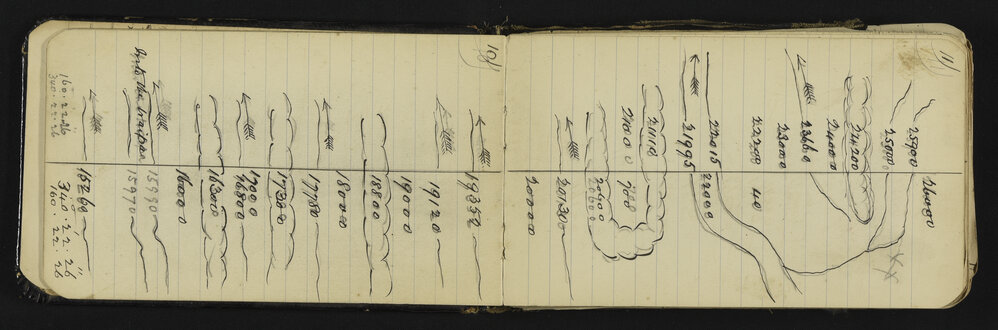 11)
26000
25900
25000
24200
24000
23660
23000
22200 40
22015 22000
21995
21110
21000 900
20600
20130
20000
10)
19350
19120
19000
18800
18000
17750
17300
17000
16800
16300
16000
15990
Into the 15970
15260
340° 22' 26"
160 . 22 . 26
160 . 22 . 26
340 . 22 . 26